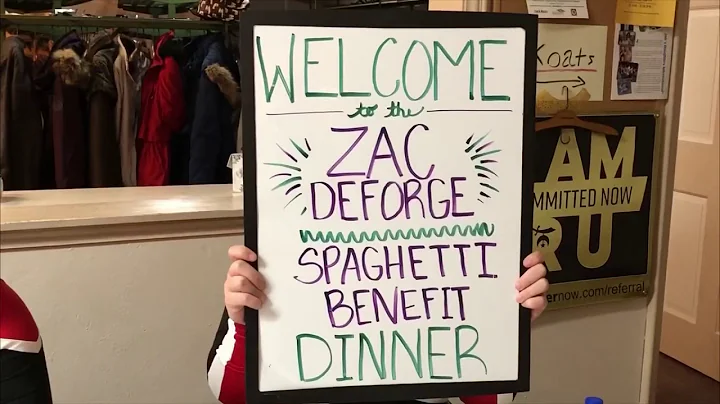 WELCOME
to the
ZAC
DEFORGE
SPAGHETTI
BENEFIT
DINNER
Koats
AM
MMITTED NOW
R U
ernow.com/referral